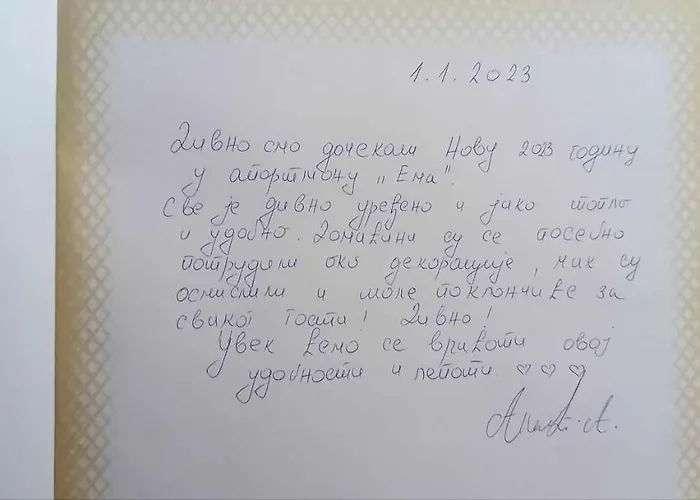 1.1.2023
Дивно смо дочекали Нову 2023 годину
у апартману „Ема“.
Све је дивно уређено и јако топло
и удобно. Домаћини су се посебно
потрудили око декорације, чак су
осмислили и мале поклончиће за
сваког госта! Дивно!
Увек ћемо се враћати овој
удобности и лепоти ♡ ♡ ♡